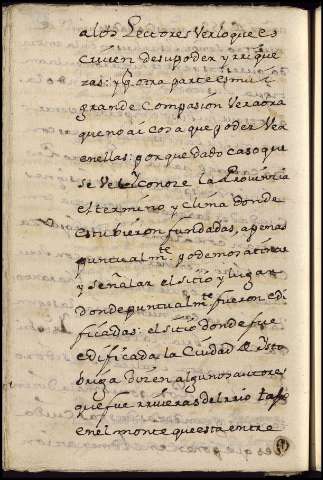 a los Lectores Ver lo que es
criven de su poder y rrique
zas: y por otra parte es mui
grande Compasion Ver aora
que no ai cosa que poder Ver
en ellas: porque dado caso que
se Ve y Conoze la Provincia
el termino y clima donde
estubieron fundadas, apenas
puntualmte podemos atinar
y señalar el sitio y lugar
donde puntualmte fueron edi
ficadas: el sitio donde fue
edificada la Ciudad de
briga dizen algunos autores
que fue rriveras del rrio tajo
en el monte que esta entre